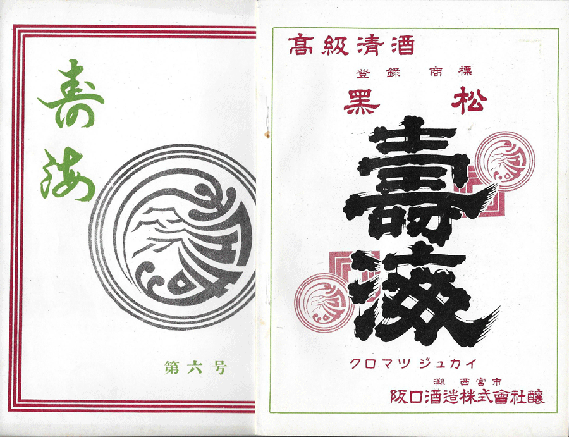 寿海
第六号
高級清酒
登録商標
黒松
壽海
クロマツジュカイ
灘 西宮市
阪口酒造株式會社醸